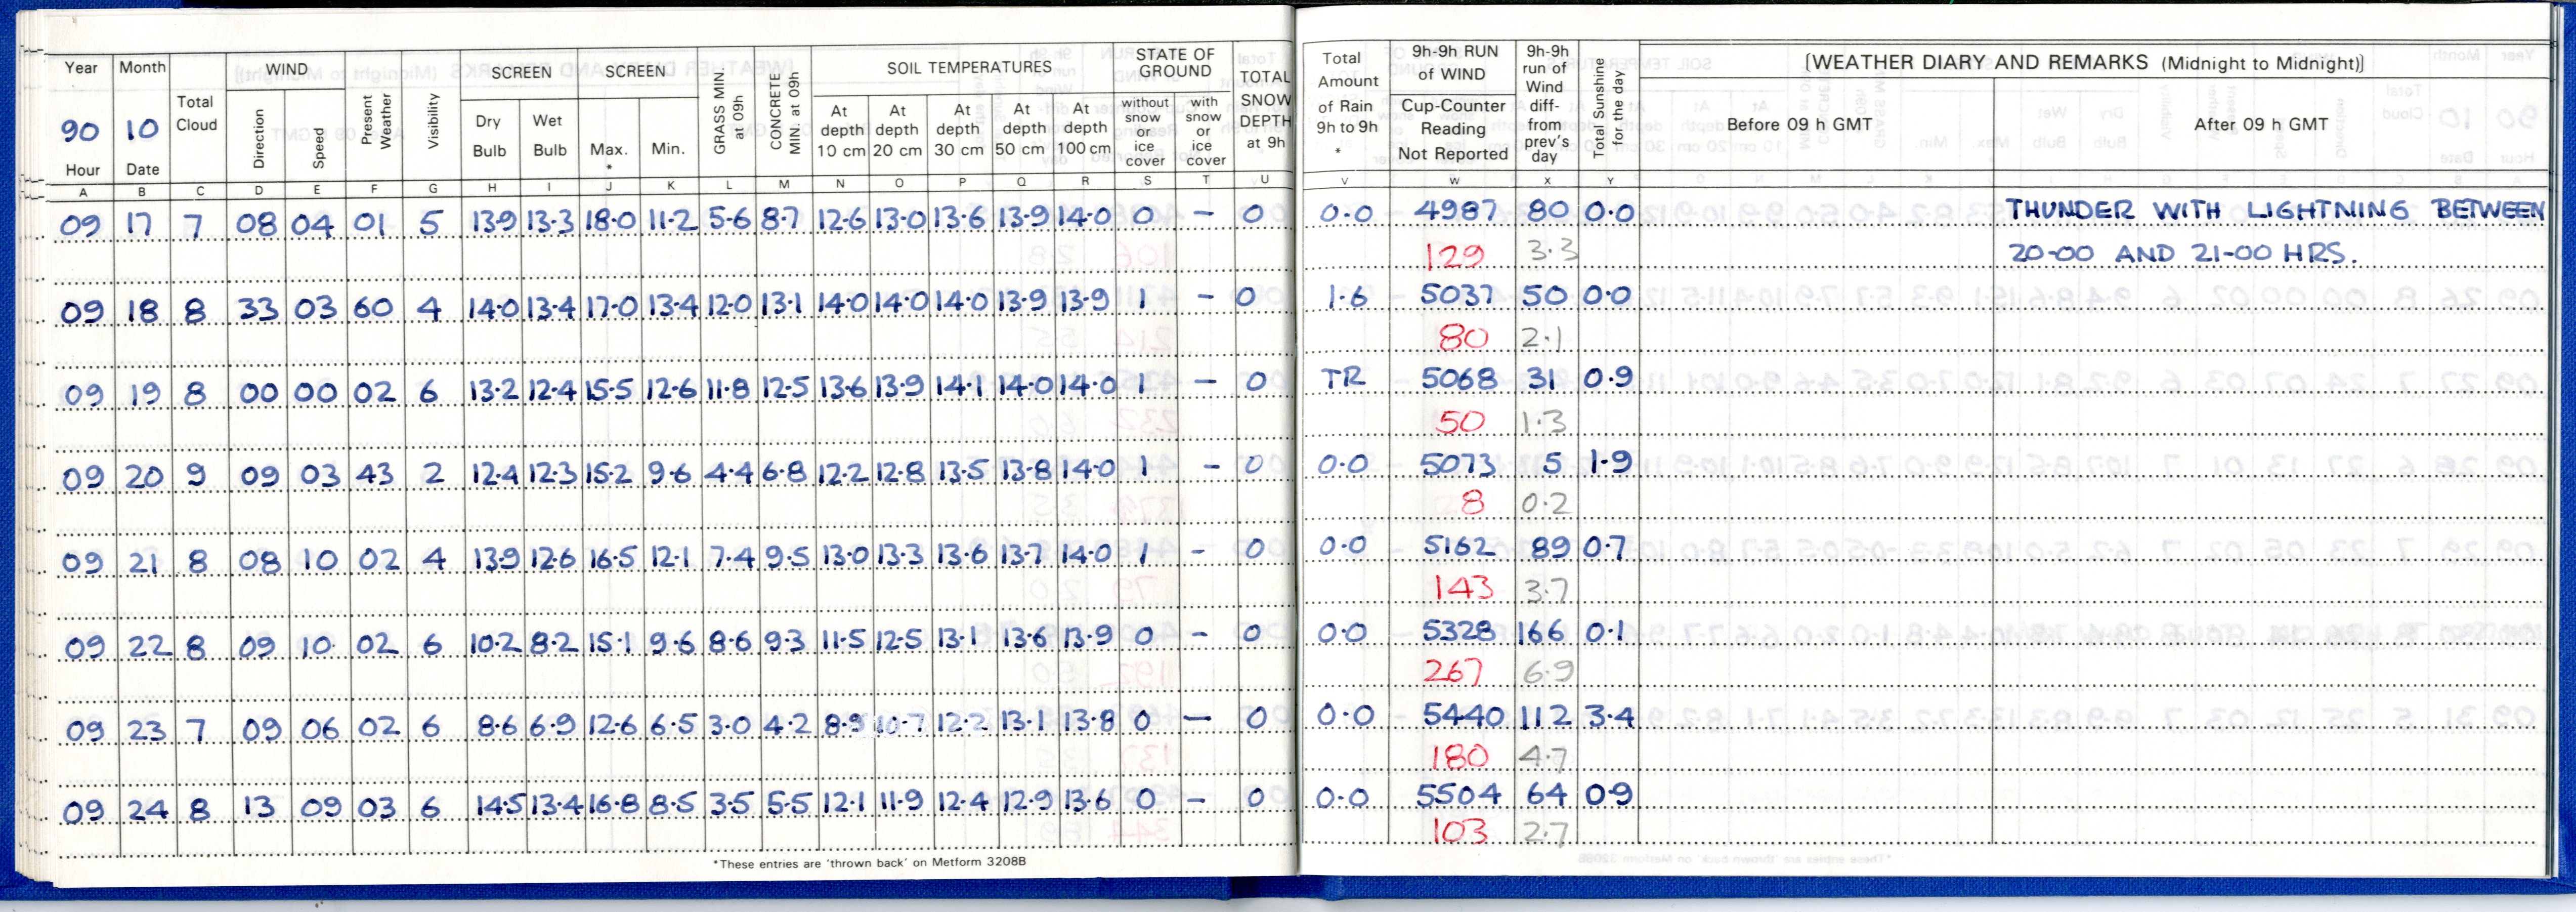 Year Month Total Cloud WIND Present Weather Visibility SCREEN SCREEN GRASS MIN. at 09h CONCRETE MIN. at 09h SOIL TEMPERATURES STATE OF GROUND TOTAL SNOW DEPTH at 9h Total Amount of Rain 9h to 9h * 9h-9h RUN of WIND 9h-9h run of Wind diff- from prev's day Total Sunshine for the day [WEATHER DIARY AND REMARKS (Midnight to Midnight)]
90 10 Direction Speed Dry Bulb Wet Bulb Max. * Min. At depth 10 cm At depth 20 cm At depth 30 cm At depth 50 cm At depth 100 cm without snow or ice cover with snow or ice cover Cup-Counter Reading Not Reported Before 09 h GMT After 09 h GMT
Hour Date
A B C D E F G H I J K L M N O P Q R S T U V W X Y
09 17 7 08 04 01 5 13.9 13.3 18.0 11.2 5.6 8.7 12.6 13.0 13.6 13.9 14.0 0 - 0 0.0 4987 80 0.0 THUNDER WITH LIGHTNING BETWEEN
129 3.3 20-00 AND 21-00 HRS.
09 18 8 33 03 60 4 14.0 13.4 17.0 13.4 12.0 13.1 14.0 14.0 14.0 13.9 13.9 1 - 0 1.6 5037 50 0.0
80 2.1
09 19 8 00 00 02 6 13.2 12.4 15.5 12.6 11.8 12.5 13.6 13.9 14.1 14.0 14.0 1 - 0 TR 5068 31 0.9
50 1.3
09 20 9 09 03 43 2 12.4 12.3 15.2 9.6 4.4 6.8 12.2 12.8 13.5 13.8 14.0 1 - 0 0.0 5073 5 1.9
8 0.2
09 21 8 08 10 02 4 13.9 12.6 16.5 12.1 7.4 9.5 13.0 13.3 13.6 13.7 14.0 1 - 0 0.0 5162 89 0.7
143 3.7
09 22 8 09 10 02 6 10.2 8.2 15.1 9.6 8.6 9.3 11.5 12.5 13.1 13.6 13.9 0 - 0 0.0 5328 166 0.1
267 6.9
09 23 7 09 06 02 6 8.6 6.9 12.6 6.5 3.0 4.2 8.9 10.7 12.2 13.1 13.8 0 - 0 0.0 5440 112 3.4
180 4.7
09 24 8 13 09 03 6 14.5 13.4 16.8 8.5 3.5 5.5 12.1 11.9 12.4 12.9 13.6 0 - 0 0.0 5504 64 0.9
103 2.7
*These entries are 'thrown back' on Metform 3208B